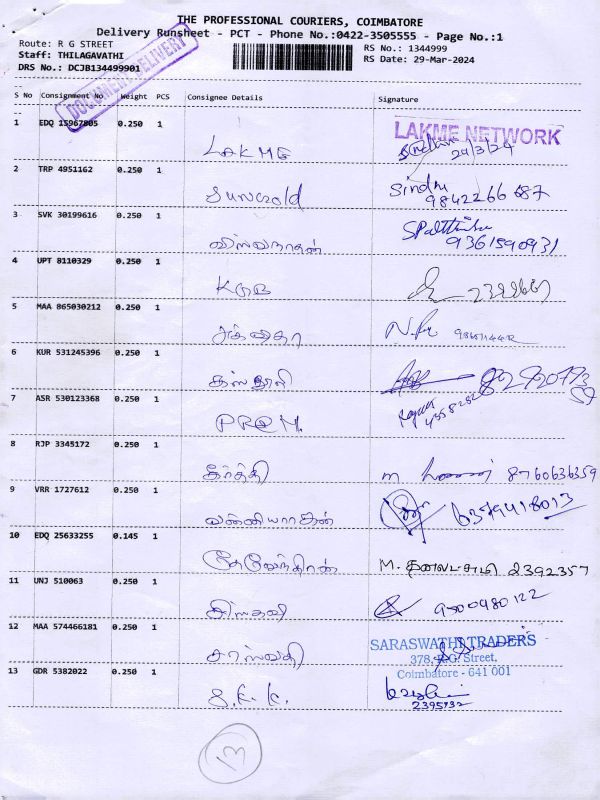 THE PROFESSIONAL COURIERS, COIMBATORE
Delivery Runsheet - PCT - Phone No.:0422-3505555 - Page No.:1
Route: R G STREET
RS No.: 1344999
Staff: THILAGAVATHI
RS Date: 29-Mar-2024
DRS No.: DCJB134499901
DOCUMENT DELIVERY
S No Consignment No Weight PCS Consignee Details Signature
1 EDQ 15967805 0.250 1 LAKME LAKME NETWORK
29/3/24
2 TRP 4951162 0.250 1 Sindhu
9842266687
3 SVK 30199616 0.250 1 விஸ்வநாதன்
9361590931
4 UPT 8110329 0.250 1
5 MAA 865030212 0.250 1
6 KUR 531245396 0.250 1
7 ASR 530123368 0.250 1 PREM
8 RJP 3345172 0.250 1 கீர்த்தி 8760636359
9 VRR 1727612 0.250 1 6379418013
10 EDQ 25633255 0.145 1 M. தனலட்சுமி 2392357
11 UNJ 510063 0.250 1 9500480122
12 MAA 574466181 0.250 1 சரஸ்வதி SARASWATHI TRADERS
378, R.G. Street,
Coimbatore - 641 001
13 GDR 5382022 0.250 1 S.K.K.
2395732
13